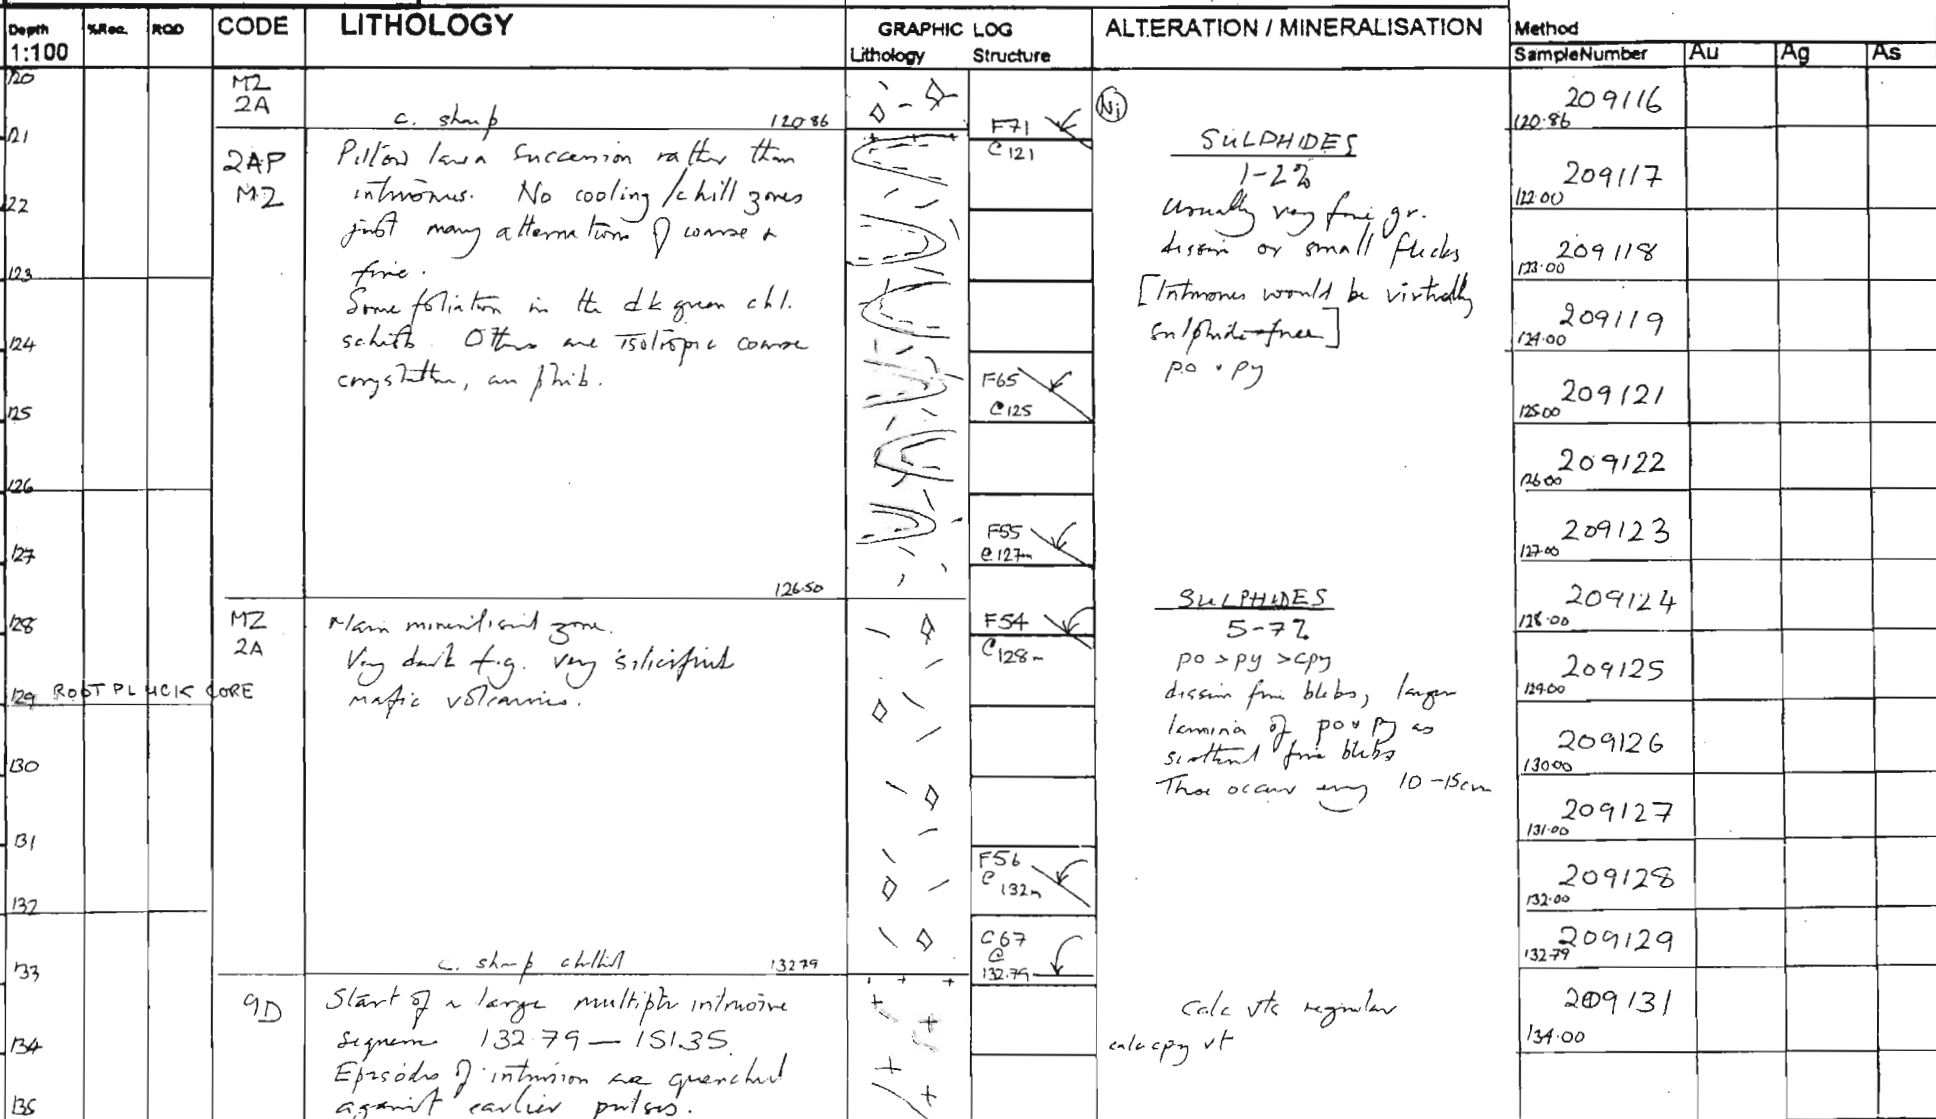 Depth %Rec. RQD CODE LITHOLOGY GRAPHIC LOG ALTERATION / MINERALISATION Method
1:100 Lithology Structure SampleNumber Au Ag As
120
121
122
123
124
125
126
127
128
129 ROOT PLUCK CORE
130
131
132
133
134
135
MZ
2A
c. sharp 120.86
2AP
MZ
Pillow lava succession rather than
intrusives. No cooling / chill zones
just many alternations of coarse &
fine.
Some foliation in the dk green chl.
schists. Others are isotropic coarse
amphib.
126.50
MZ
2A
Main mineralised zone.
Very dark f.g. very silicified
mafic volcanics.
c. sharp chilled 132.79
9D
Start of a large multiple intrusive
sequence 132.79 — 151.35
Episodes of intrusion are quenched
against earlier pulses.
F71
@ 121
F65
@ 125
F55
@ 127m
F54
@ 128m
F56
@ 132m
C67
@
132.79
Ni
SULPHIDES
1-2%
Usually very fine gr.
dissem or small flecks
[Intrusives would be virtually
sulphide-free]
po py
SULPHIDES
5-7%
po > py > cpy
dissem fine blebs, larger
lamina of po py as
scattered fine blebs
These occur every 10-15cm
Calc vts regular
calc cpy vt
209116
120.86
209117
122.00
209118
123.00
209119
124.00
209121
125.00
209122
126.00
209123
127.00
209124
128.00
209125
129.00
209126
130.00
209127
131.00
209128
132.00
209129
132.79
209131
134.00